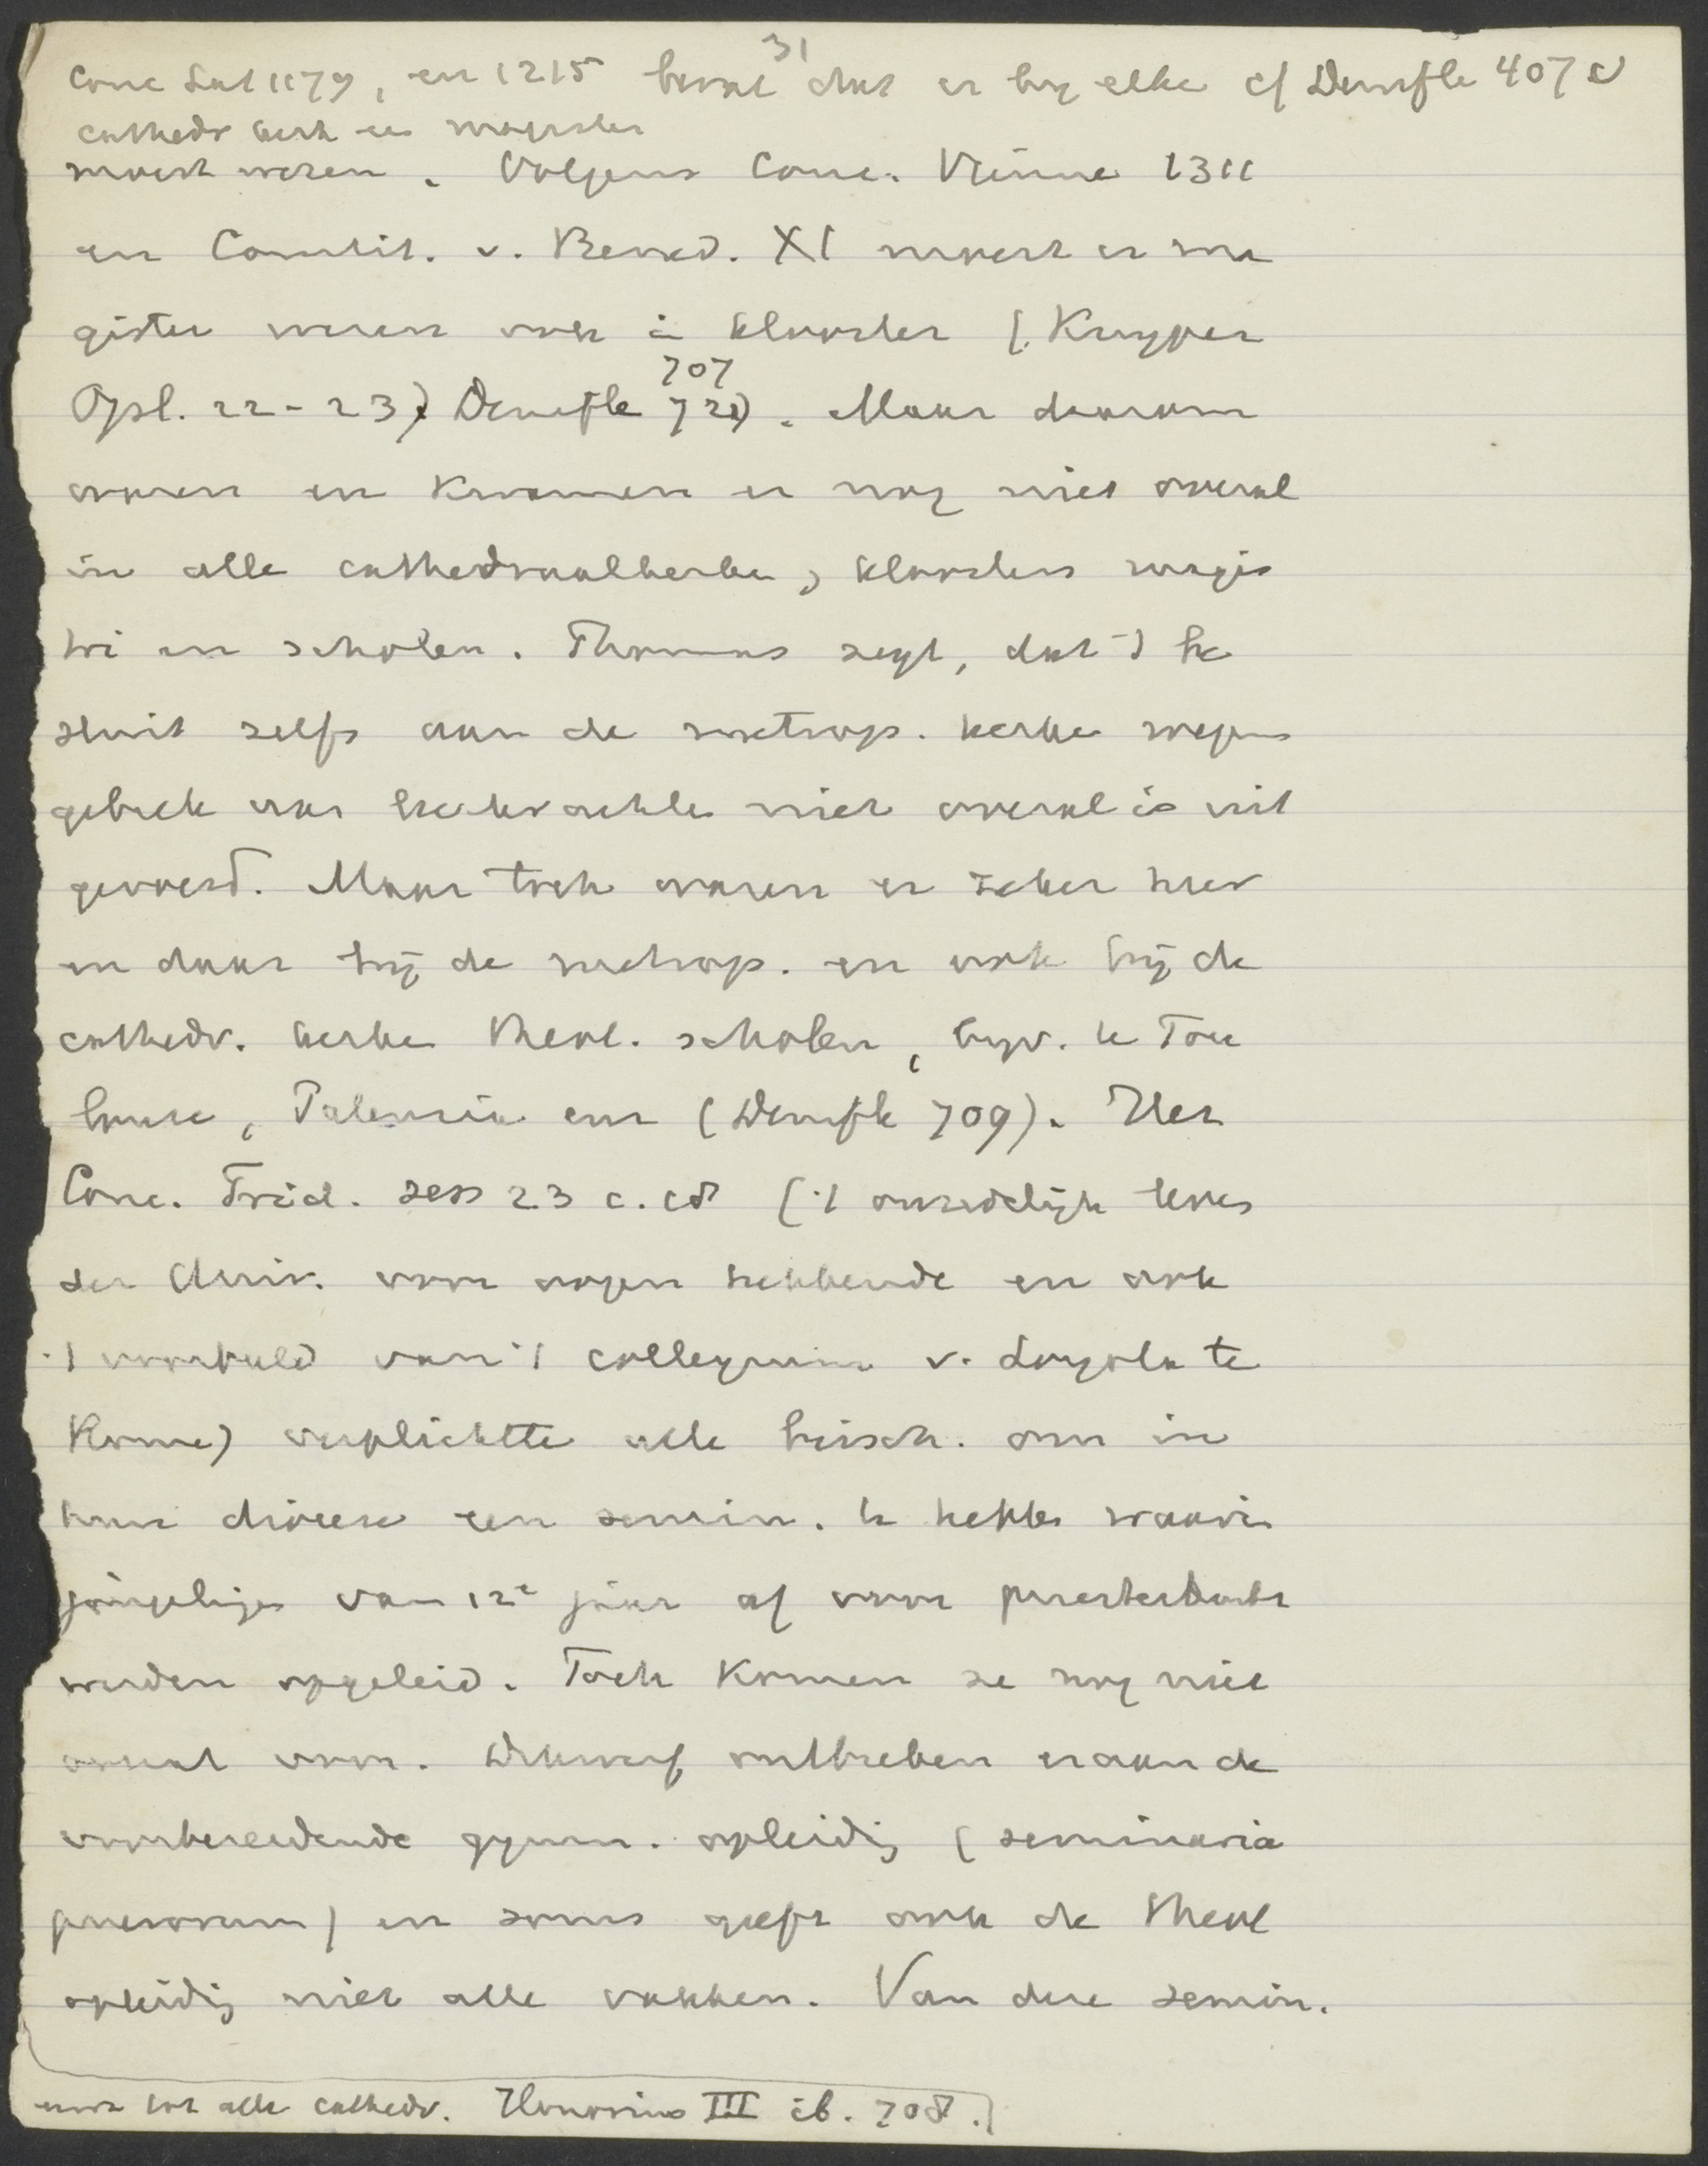 31
Conc Lat 1179, en 1215 bevat dat er by elke cf Denifle 407 v
cathedr kerk een magister
moest wezen. Volgens Conc. Vienne 1311
en Constit. v. Bened. XI moest er ma
gister wezen ook in klooster (Kuyper
Opl. 22-23) Denifle 707 721). Maar daarom
waren en kwamen er nog niet overal
in alle cathedraalkerken, kloosters magis
tri en scholen. Thomas zegt, dat 't be
sluit zelfs aan de metrop. kerken wegens
gebrek aan leerkrachten niet overal is uit
gevoerd. Maar toch waren er zeker hier
en daar bij de metrop. en ook bij de
cathedr. kerken theol. scholen, byv. te Tou
louse, Palencia enz (Denifle 709). Het
Conc. Trid. sess 23 c. 18 ('t onzedelijk leven
der Univ. voor oogen hebbende en ook
't voorbeeld van 't collegium v. Loyola te
Rome) verplichtte alle bissch. om in
hun diocese een semin. te hebben waarin
jongelingen van 12e jaar af voor priesterambt
werden opgeleid. Toch komen ze nog niet
overal voor. Dikwerf ontbreken eraan de
voorbereidende gymn. opleiding (seminaria
puerorum) en soms geeft ook de theol
opleiding niet alle vakken. Van deze semin.
tot alle cathedr. Honorius III ib. 708.)